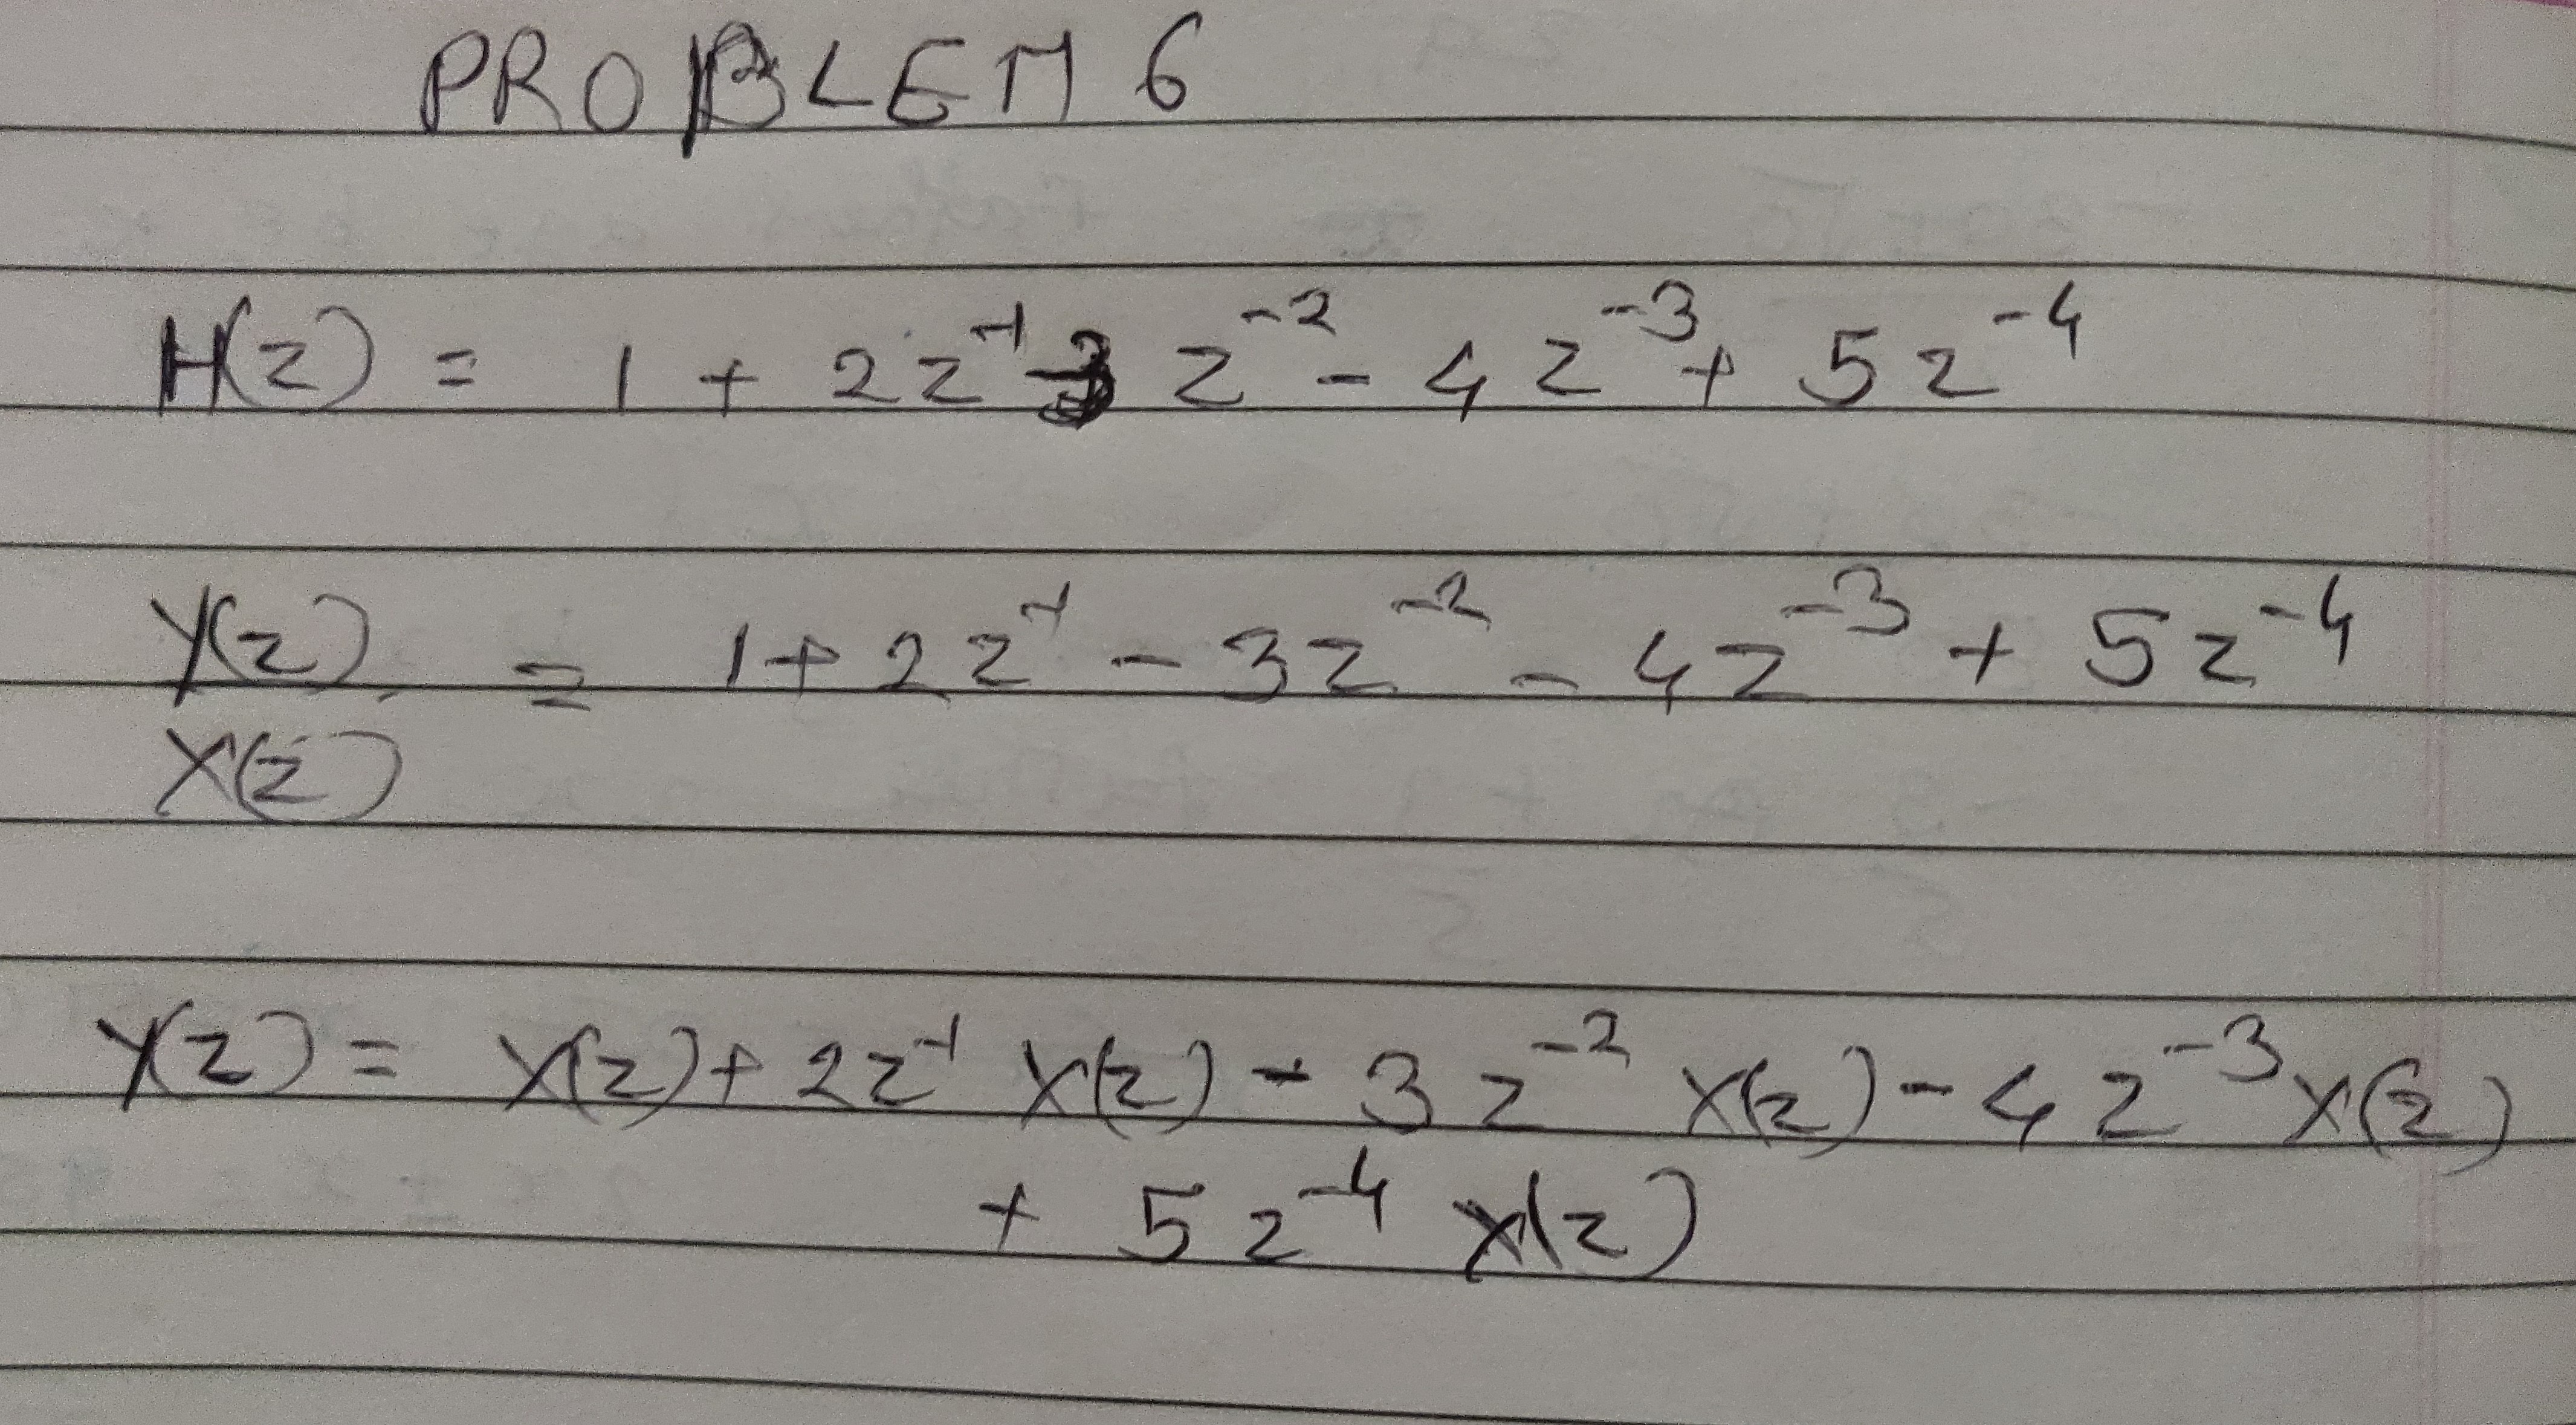 PROBLEM 6
H(z) = 1 + 2z⁻¹ - 3 z⁻² - 4z⁻³ + 5z⁻⁴
Y(z) = 1 + 2z⁻¹ - 3z⁻² - 4z⁻³ + 5z⁻⁴
X(z)
Y(z) = X(z) + 2z⁻¹ X(z) - 3z⁻² X(z) - 4z⁻³ X(z)
+ 5z⁻⁴ X(z)